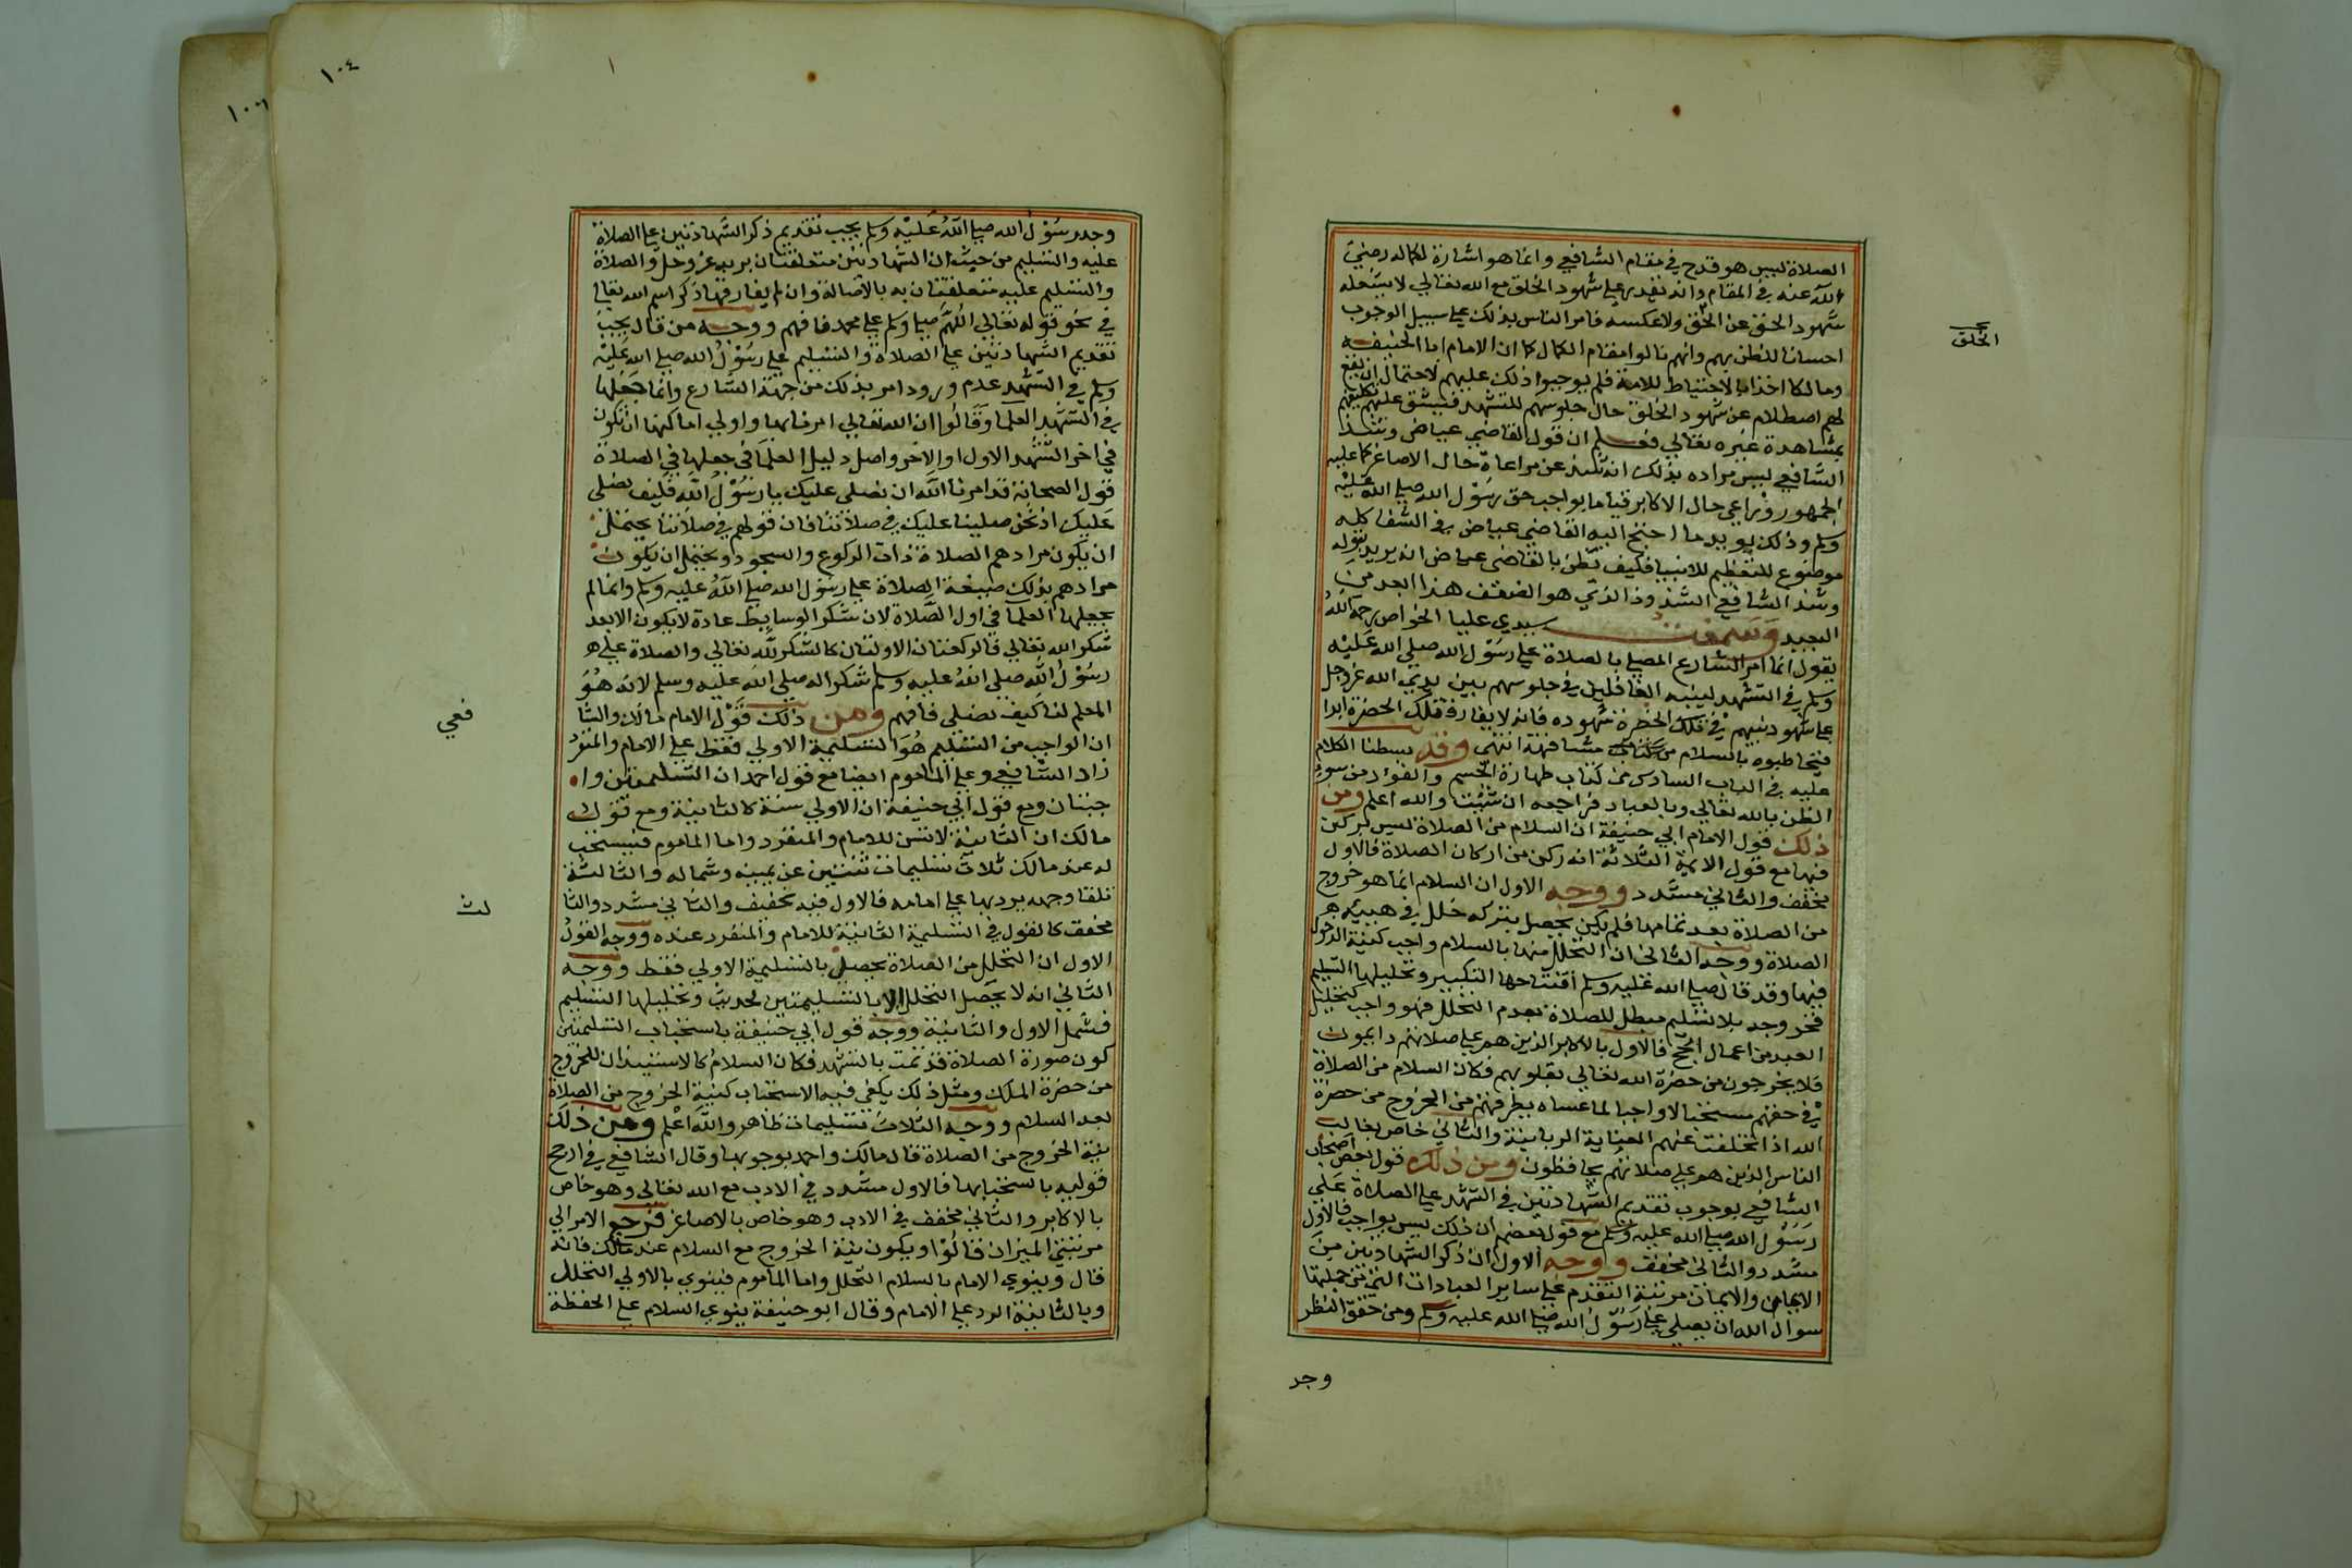 الصلاة ليس هو قدح في مقام الشافعي وانما هو اشارة لكماله رضي
الله عنه في المقام وانه يقدر على شهود الخلق مع الله تعالى لا يشغله
شهود الحق عن الخلق ولا عكسه فامر الناس بذلك على سبيل الوجوب
احسانا للظن بهم وانهم نالوا مقام الكمال كما ان الامام ابا حنيفه
ومالكا اخذا بالاحتياط للامة فلم يوجبوا ذلك عليهم لاحتمال ان يقع
لهم اصطلام عن شهود الخلق حال جلوسهم للتشهد فيشق عليهم تكليفهم
بمشاهدة غيره تعالى فعلم ان قول القاضي عياض وشذ
الشافعي ليس مراده بذلك انه شذ عن مراعاة حال الاصاغر كما عليه
الجمهور وراعى حال الاكابر قياما بواجب حق رسول الله صلى الله عليه
وسلم وذلك يويد ما احتج اليه القاضي عياض في الشفا كله
موضوع للتعظيم للانبيا فكيف يظن بالقاضي عياض انه يريد بقوله
وشذ الشافعي الشذوذ الذي هو الضعف هذا ابعد من
البعيد وسمعت سيدي عليا الخواص رحمه الله
يقول انما امر الشارع المصلي بالصلاة على رسول الله صلى الله عليه
وسلم في التشهد لينبه الغافلين في جلوسهم بين يدي الله عز وجل
على شهود نبيهم في تلك الحضرة شهوده فانه لا يفارق تلك الحضرة ابدا
فيخاطبوه بالسلام مشافهة انتهى وقد بسطنا الكلام
عليه في الباب السادس من كتاب طهارة الجسم والفؤاد من سوء
الظن بالله تعالى وبالعباد فراجعه ان شئت والله اعلم ومن
ذلك قول الامام ابي حنيفة ان السلام من الصلاة ليس بركن
فيها مع قول الايمة الثلاثة انه ركن من اركان الصلاة فالاول
مخفف والثاني مشدد ووجه الاول ان السلام انما هو خروج
من الصلاة بعد تمامها فلم يكن يحصل بتركه خلل في هيئة
الصلاة ووجه الثاني ان التحلل منها بالسلام واجب كنية الدخول
فيها وقد قال صلى الله عليه وسلم افتتاحها التكبير وتحليلها التسليم
فخروجه بلا تسليم مبطل للصلاة بعدم التحلل فهو واجب كتحليل
العبد من اعمال الحج فالاول بالاكابر الذين هم على صلاتهم دايمون
فلا يخرجون من حضرة الله تعالى بقلوبهم فكان السلام من الصلاة
في حقهم مستحبا لا واجبا لما عساه يطرقهم من الخروج من حضرة
الله اذا تخلفت عنهم العناية الربانية والثاني خاص بغالب
الناس الذين هم على صلاتهم يحافظون ومن ذلك قول بعض اصحاب
الشافعي بوجوب تقديم الشهادتين في التشهد على الصلاة على
رسول الله صلى الله عليه وسلم مع قول بعضهم ان ذلك ليس بواجب فالاول
مشدد والثاني مخفف ووجه الاول ان ذكر الشهادتين من
الايمان والايمان مرتبته التقدم على ساير العبادات التي من جملتها
سوال الله ان يصلي على رسول الله صلى الله عليه وسلم ومن حقق النظر
وجد
الخلق
١٠٤
وجد رسول الله صلى الله عليه وسلم يجب تقديم ذكر الشهادتين على الصلاة
عليه والتسليم من حيث ان الشهادتين متعلقتان بربه عز وجل والصلاة
والتسليم عليه متعلقتان به بالاصالة وان لم يفارقها ذكر اسم الله تعالى
في نحو قوله تعالى اللهم صل وسلم على محمد فافهم ووجه من قال يجب
تقديم الشهادتين على الصلاة والتسليم على رسول الله صلى الله عليه
وسلم في التشهد عدم ورود امر بذلك من جهة الشارع وانما جعلها
في التشهد العلما وقالوا ان الله تعالى امرنا بها واولى اماكنها ان تكون
في اخر التشهد الاول او الاخر واصل دليل العلما في جعلها في الصلاة
قول الصحابة قد امرنا الله ان نصلي عليك يا رسول الله فكيف نصلي
عليك اذ نحن صلينا عليك في صلاتنا فان قولهم في صلاتنا يحتمل
ان يكون مرادهم الصلاة ذات الركوع والسجود ويحتمل ان يكون
مرادهم بذلك صيغة الصلاة على رسول الله صلى الله عليه وسلم وانما لم
يجعلها العلما في اول الصلاة لان شكر الوسايط عادة لا يكون الا بعد
شكر الله تعالى فالركعتان الاولتان كالشكر لله تعالى والصلاة على
رسول الله صلى الله عليه وسلم شكرا له صلى الله عليه وسلم لانه هو
المعلم لنا كيف نصلي فافهم ومن ذلك قول الامام مالك والشا
فعي
ان الواجب من التسليم هو التسليمة الاولى فقط على الامام والمنفرد
زاد الشافعي وعلى الماموم ايضا مع قول احمد ان التسليمتين وا
جبتان ومع قول ابي حنيفة ان الاولى سنة كالثانية ومع قول
مالك ان الثانية لا تسن للامام والمنفرد واما الماموم فيستحب
له عند مالك ثلاث تسليمات ثنتين عن يمينه وشماله والثالثة
تلقا وجهه يردها على امامه فالاول فيه تخفيف والثاني مشدد والثا
لث
مخفف كالقول في التسليمة الثانية للامام والمنفرد عنده ووجه القول
الاول ان التحلل من الصلاة يحصل بالتسليمة الاولى فقط ووجه
الثاني انه لا يحصل التحلل الا بالتسليمتين لحديث وتحليلها التسليم
فشمل الاول والثانية ووجه قول ابي حنيفة باستحباب التسليمتين
كون صورة الصلاة قد تمت بالتشهد فكان السلام كالاستيذان للخروج
من حضرة الملك ومثل ذلك يكفي فيه الاستحباب كنية الخروج من الصلاة
بعد السلام ووجه الثلاث تسليمات ظاهر والله اعلم ومن ذلك
نية الخروج من الصلاة قال مالك واحمد بوجوبها وقال الشافعي في ارجح
قوليه باستحبابها فالاول مشدد في الادب مع الله تعالى وهو خاص
بالاكابر والثاني مخفف في الادب وهو خاص بالاصاغر فرجع الامر الى
مرتبتي الميزان قالوا ويكون نية الخروج مع السلام عند مالك فانه
قال وينوي الامام بالسلام التحلل واما الماموم فينوي بالاولى التحلل
وبالثانية الرد على الامام وقال ابو حنيفة ينوي السلام على الحفظة